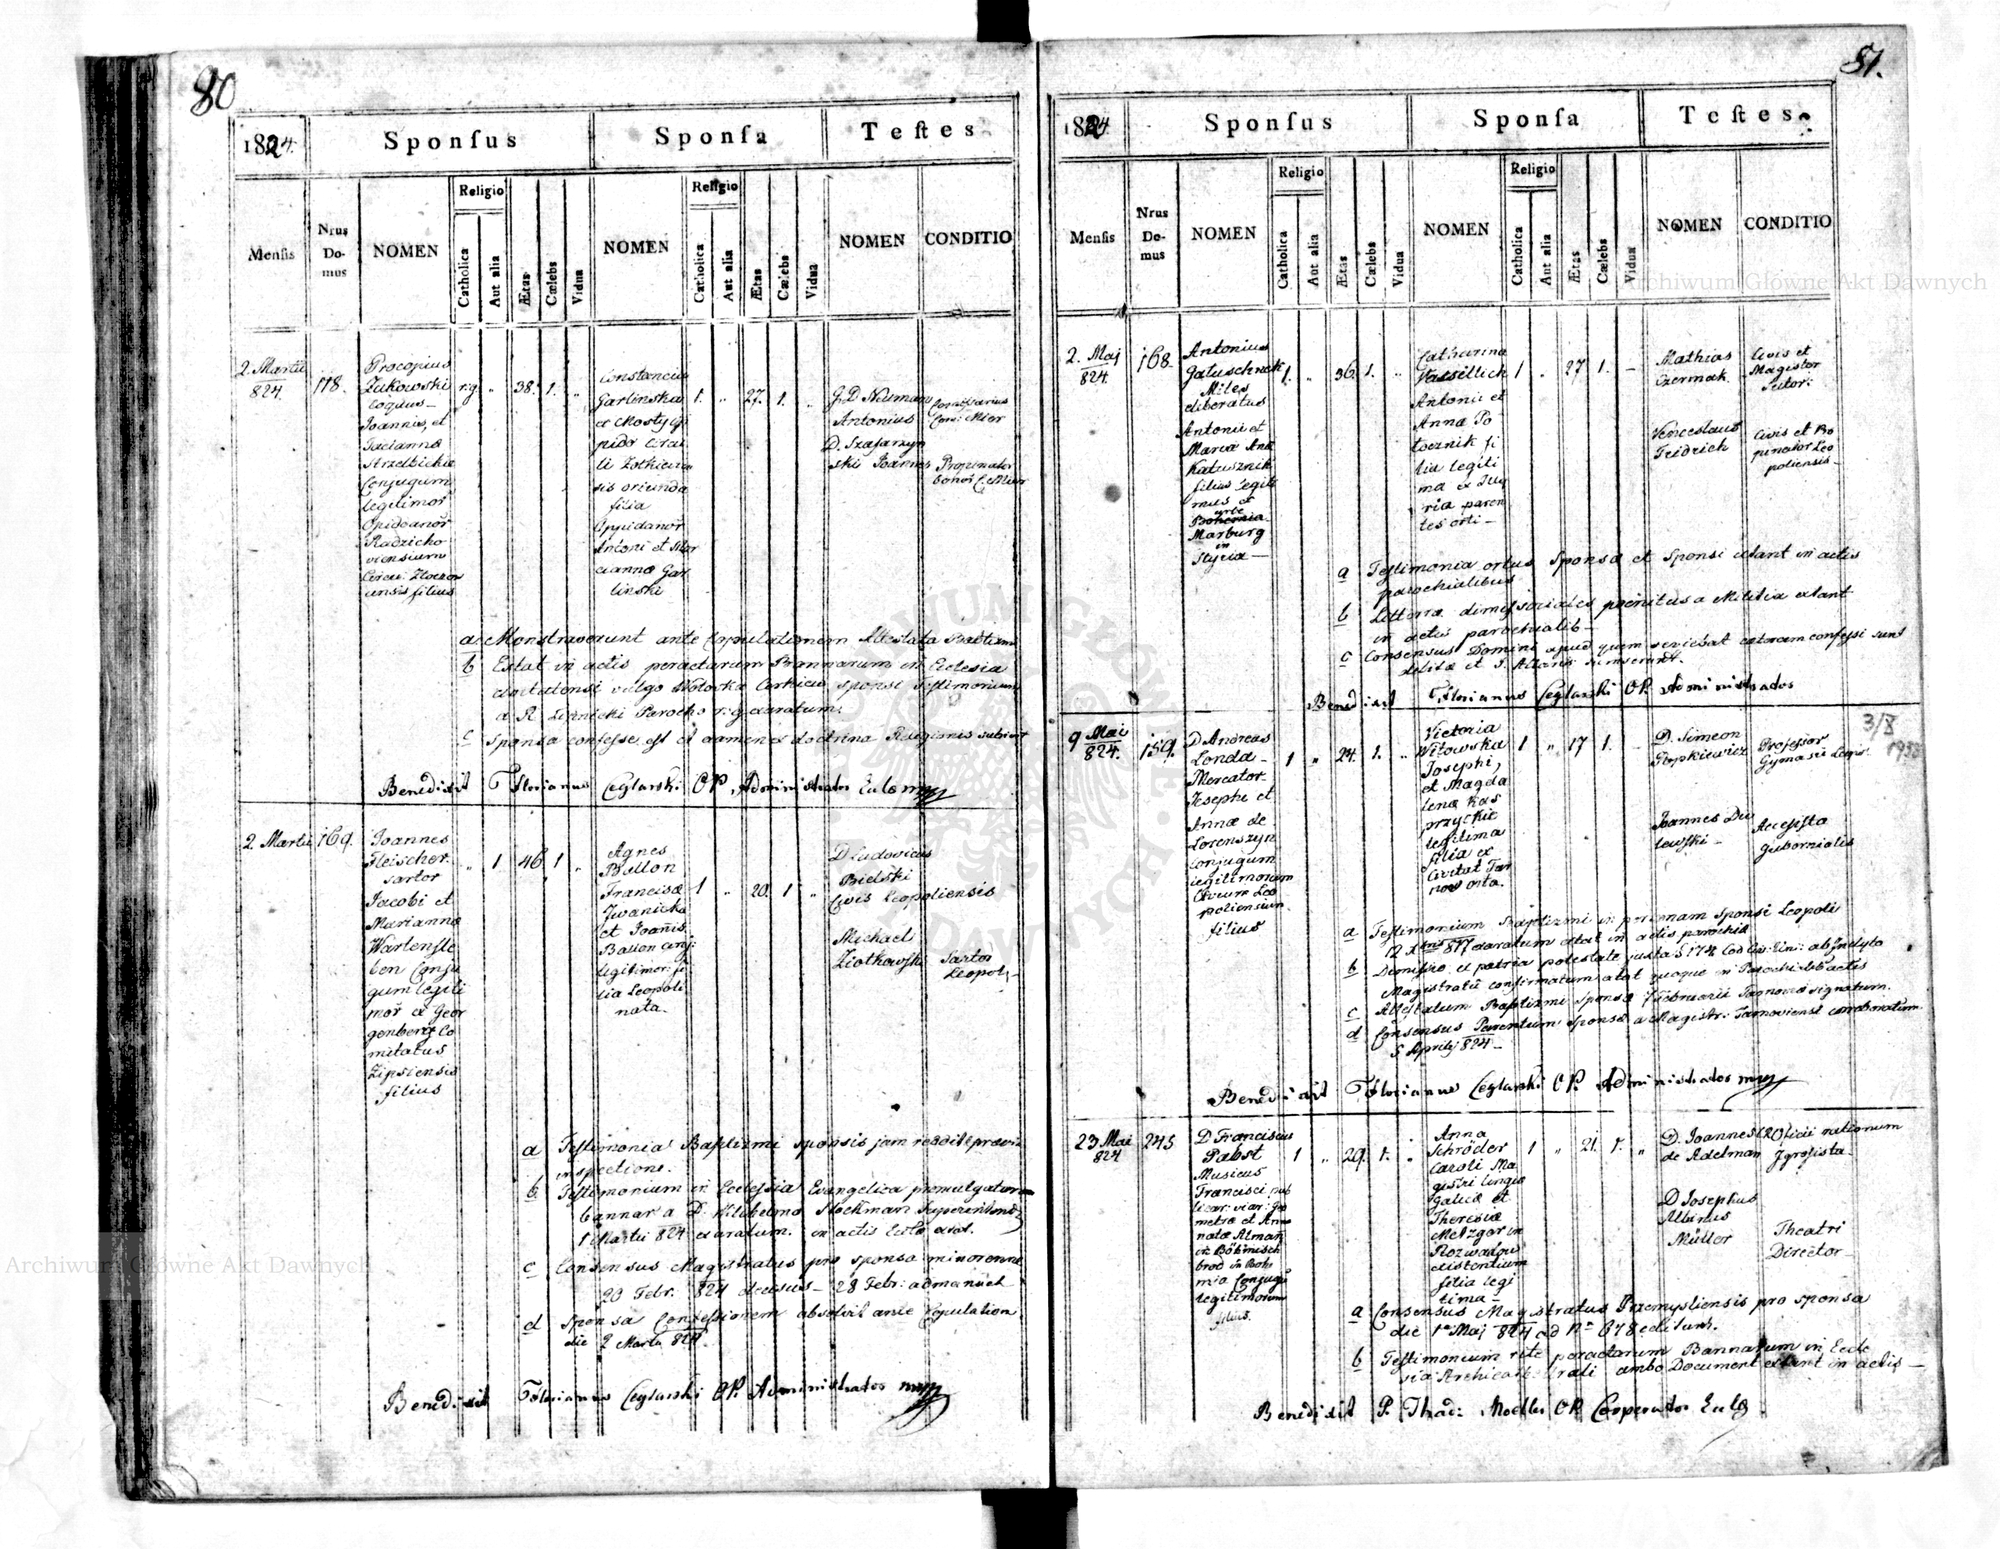 80
1824.
Sponsus
Sponsa
Testes
Mensis
Nrus Do-mus
NOMEN
Religio
Catholica
Aut alia
Ætas
Cælebs
Vidua
NOMEN
Religio
Catholica
Aut alia
Ætas
Cælebs
Vidua
NOMEN
CONDITIO
2. Martii
824.
118.
Procopius
Zukowski
coquus
Joannis, et
Tacianna
Strzelbickie
Conjugum
legitimor
Opidanor
Radzicho
viensium
Circu: Zloczov
iensis filius
r.g.
"
38.
1.
"
Constancia
Garlinska
ex Mosty op
pido Circu
li Zolkievi
sis oriunda
filia
Oppidanor
Antoni et Mar
cianna Gar
linski
1.
"
27.
1.
"
G. D Neuman
Antonius
D. Szafarzyn
ski Joannes
Propinator
a Monstraverunt ante Copulationem Attestata
b Extat in actis peractarum Bannarum in Ecclesia
vulgo Wołoska Cerkiew sponsi Testimonium
a R. Parocho r: g exaratum.
c Sponsa confesse est et examen ex doctrina Religionis subivit
Benedixit Florianus Ceglarski OP. Administrator Eclæ mpp
2. Martii
169.
Joannes
Fleischer
sartor
Jacobi et
Marianna
Wartensle
ben Conju
gum legiti
mor ex Geor
genberg Co
mitatus
Zipsiensis
filius
"
1
46
1
"
Agnes
Ballon
Francisca
Iwanicka
et Joanis
Ballon conj:
legitimor: fi
lia Leopoli
nata.
1
"
20.
1
"
D Ludovicus
Bielski
Civis Leopoliensis
Michael
Ziotkowski
Sartor
Leopol:
a Testimonia Baptizmi sponsis jam reddit prævia
inspectione.
b. Testimonium in Ecclesia Evangelica promulgatarum
bannar a D. Vilibelmo Stockman Superintend:
1 Martii 824 exaratum. in actis Eclæ exst.
c Consensus Magistratus pro sponsa minorenne
20 Febr. 824 decisus — 28 Febr: admanuat
d Sponsa Confessionem absolvit ante Copulation
die 2 Martii 824.
Benedixit Florianus Ceglarski OP. Administrator mpp
81.
1824.
Sponsus
Sponsa
Testes
Mensis
Nrus Do-mus
NOMEN
Religio
Catholica
Aut alia
Ætas
Cælebs
Vidua
NOMEN
Religio
Catholica
Aut alia
Ætas
Cælebs
Vidua
NOMEN
CONDITIO
2. Maj
824.
168.
Antonius
Gatuschnek
Miles
eliberatus
Antonii et
Maria Ana
Katusznik
filius legiti
mus ex
urbe
Bohemia
Marburg
in
Styria —
1.
"
36.
1.
"
Catharina
Vassellich
Antonii et
Anna Po
tocznik fi
lia legiti
ma ex Illy
ria paren
tes orti —
1
"
27
1.
—
Mathias
Czermak.
Civis et
Magister
Sutor:
Venceslaus
Fridrich
Civis et Pro
pinator Leo
poliensis —
a Testimonia ortus Sponsæ et Sponsi extant in actis
parochialibus
b Litteræ dimissoriales penitus a Militia extant
in actis parochialib —
c Consensus Domini apud quem serviebat caterum confessi sunt
delicta et S. Altaris sumserunt.
Benedixit Florianus Ceglarski OP. Administrator
9 Maj
824.
159.
D Andreas
Londa —
Mercator
Josephi et
Annæ de
Lorenszyn
Conjugum
legitimorum
Civium Leo
poliensium
filius
1
"
24.
1.
"
Victoria
Witowska
Josephi,
et Magda
lena Kas
przyckie
legitima
filia ex
Civitat Tar
now orta.
1
"
17
1.
D. Simeon
Stopkiewicz
Professor
Gymasii Leopol
Joannes Du
lewski —
Accessista
Gubernialis
3/8
1938
a Testimonium Baptizmi in personam Sponsi Leopoli
12 Xbris 817 exaratum extat in actis parochia
b Demissio ex patria potestate juxta § 174 Cod Civ: Civi: ab Inclyto
Magistratu confirmatum extat quoque in Parochialibus actis
c Attestatum Baptizmi Sponsæ 7 Februarii Tarnoviæ signatum.
d Consensus Parentum sponsæ a Magistr: Tarnoviensi corroboratum
5 Aprilij 824 —
Benedixit Florianus Ceglarski OP. Administrator mpp
23 Maj
824
245
D Franciscus
Pabst
Musicus
Francisci pub
licar: viar: Geo
metra et An
natæ Alman
in Böhmisch
brod in Bohe
mia Conjugu
legitimorum
filius.
1
"
29.
1.
"
Anna
Schröder
Caroli Ma
gistri lingua
galica et
Theresiæ
Metzgor in
Rozwadow
existentium
filia legi
tima —
1
"
21.
1.
"
D. Joannes
de Adelman
Officii rationum
Igrossista
D Josephus
Albinus
Müller
Theatri
Director —
a Consensus Magistratus Przemysliensis pro sponsa
die 1a Maj 824 ad No 678 editum.
b Testimonium rite peractarum Bannarum in Eccle
sia Archicathedrali ambo Document extant in actis —
Benedixit P. Thad: Moeller OP. Cooperator Eclæ
Archiwum Główne Akt Dawnych
Archiwum Główne Akt Dawnych
ARCHIWUM GŁÓWNE AKT DAWNYCH